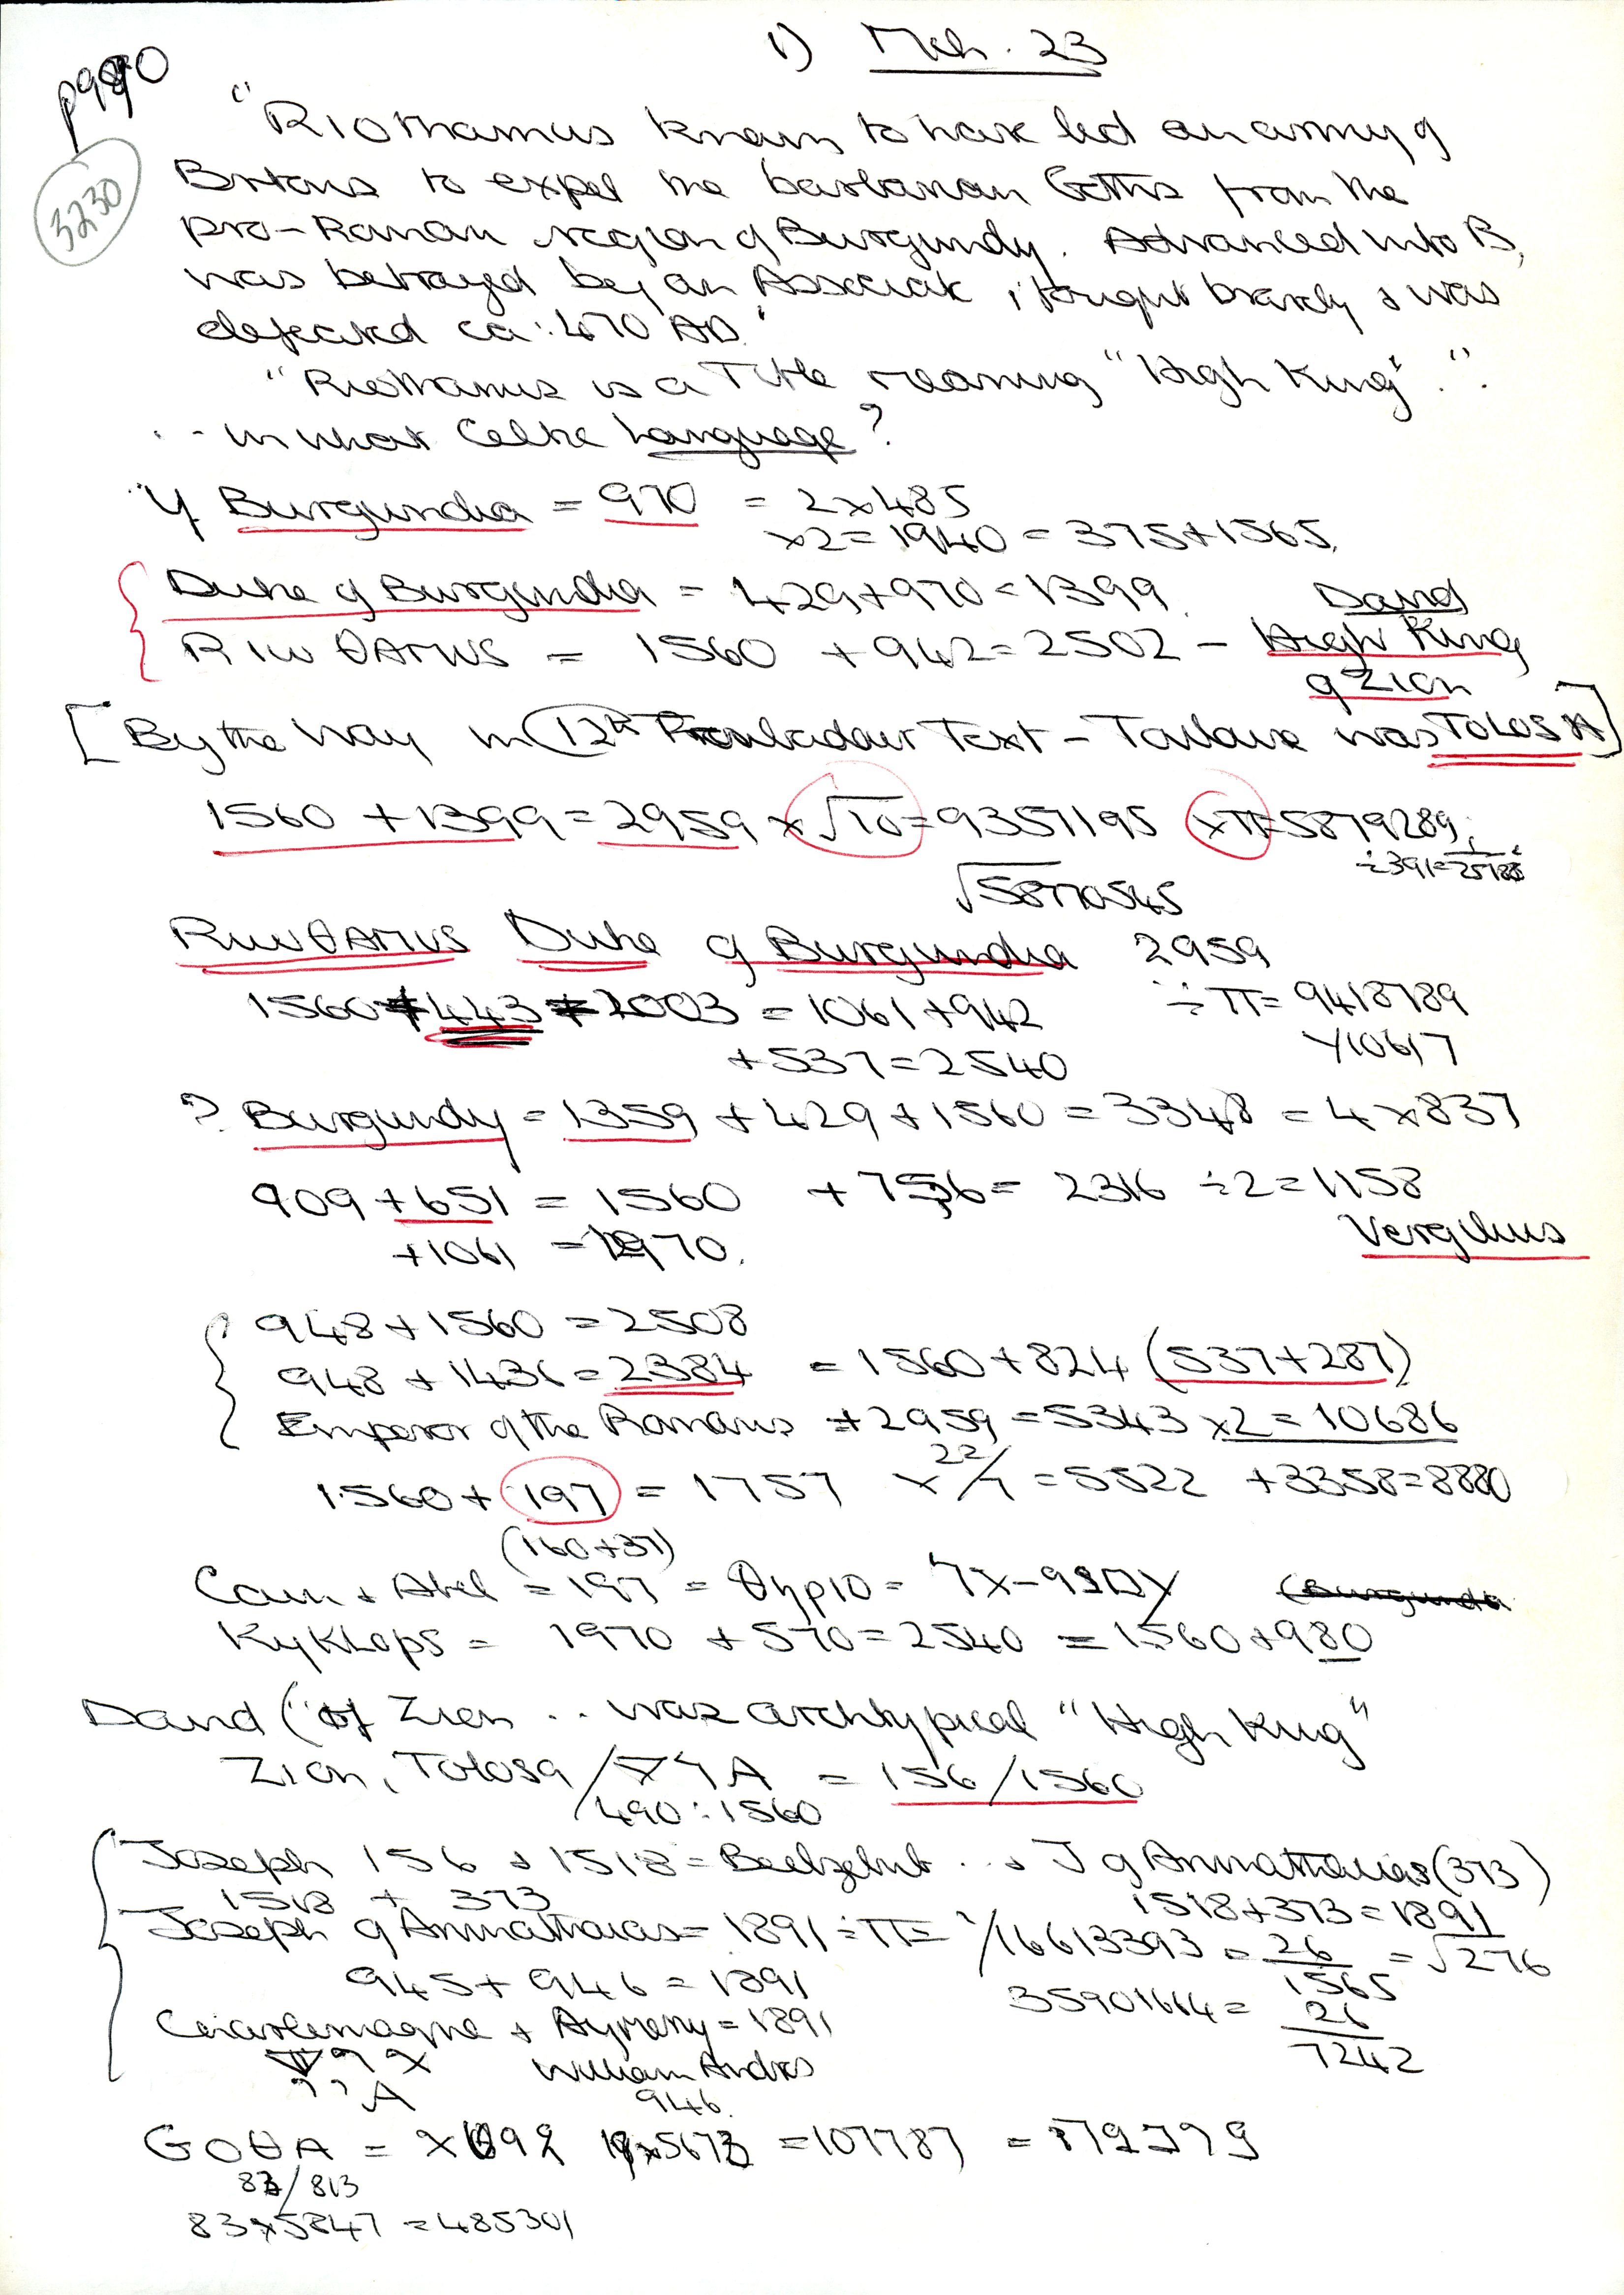 1) Mch. 23
p990
3230
"Riothamus known to have led an army of
Britons to expel the barbarian Goths from the
pro-Roman region of Burgundy. Advanced into B,
was betrayed by an Associate, fought bravely & was
defeated ca. 470 AD."
"Riothamus is a Title meaning "High King"."
.. in what Celtic Language?
If Burgundia = 970 = 2x485
x2=1940 = 375+1565.
Duke of Burgundia = 429+970=1399
RIWθAMUS = 1560 + 942=2502 - David
High King
of Zion
[By the way in 12th Troubadour Text - Toulouse was TOLOSA]
1560 + 1399 = 2959 x √10 = 9357195 xπ=5879289
÷391=
√58770545
RIWθAMUS Duke of Burgundia 2959
1560+443=2003 = 1061+942 ÷π= 9418789
+537=2540 10617
? Burgundy = 1359 + 429 + 1560 = 3348 = 4x837
909 + 651 = 1560 + 756 = 2316 ÷2=1158
+1061 = 1970. Vergilius
948+1560 = 2508
948 + 1436 = 2384 = 1560+824 (537+287)
Emperor of the Romans +2959 = 5343 x2=10686
1560 + 197 = 1757 x 22/7 = 5522 +3358=8880
(160+37)
Cain & Abel = 197 =
KyKLops = 1970 + 570=2540 = 1560+980
David ("of Zion .. was archtypical "High King"
Zion, Tolosa / = 156/1560
490:1560
Joseph 156 & 1518 = Beelzebub .. & J of Arimathaias (373)
1518 + 373 1518+373=1891
Joseph of Arimathaias = 1891 ÷π= 1/16613393 = 26/1565 = √276
945+ 946 = 1891 35901664 = 26/7242
Charlemagne & Aymery = 1891
William Andros
946.
GOθA = 19x5673 = 107787 =
83/813
83x5847 = 485301